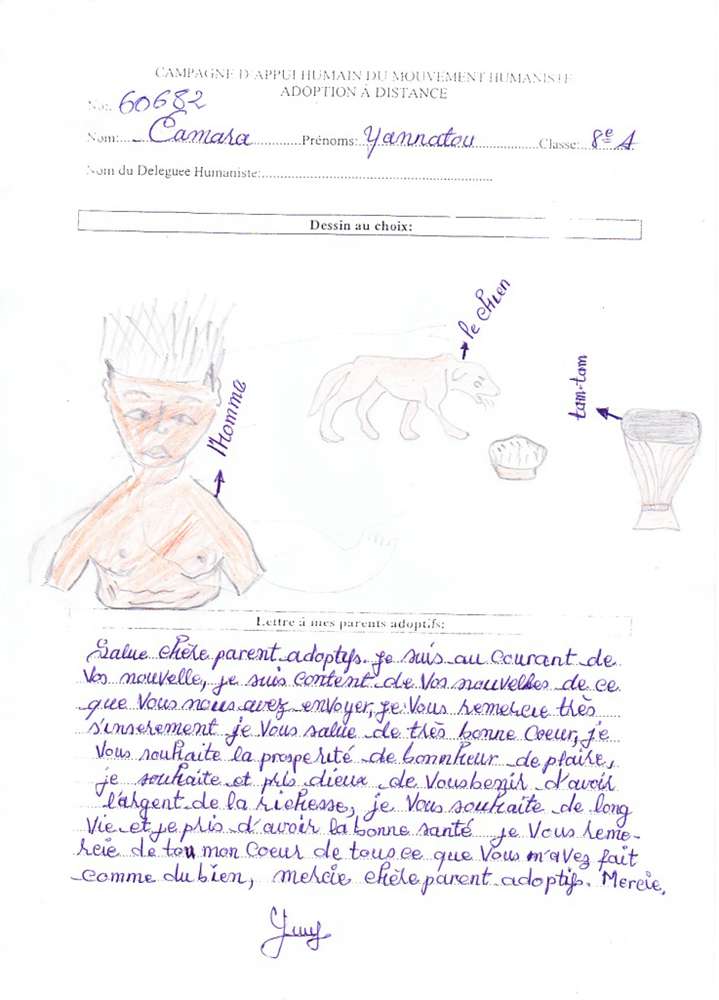 CAMPAGNE D'APPUI HUMAIN DU MOUVEMENT HUMANISTE
ADOPTION À DISTANCE
No: 60682
Nom: Camara Prénoms: Yannatou Classe: 8e A
Nom du Deleguee Humaniste:
Dessin au choix:
le chien
tam-tam
l'Homme
Lettre à mes parents adoptifs:
Salue chère parent adoptifs. je suis au courant de
Vos nouvelle, je suis content de Vos nouvelles de ce
que Vous nous avez envoyer, je Vous remercie très
s'inserement je Vous salue de très bonne Coeur, je
Vous souhaite la prosperité de bonnheur de plaire,
je souhaite et pris dieux de Vous benir d'avoir
l'argent de la richesse, je Vous souhaite de long
Vie et je pris d'avoir la bonne santé je Vous reme-
rcie de tou mon Coeur de tous ce que Vous m'avez fait
comme du bien, mercie chère parent adoptifs. Mercie,